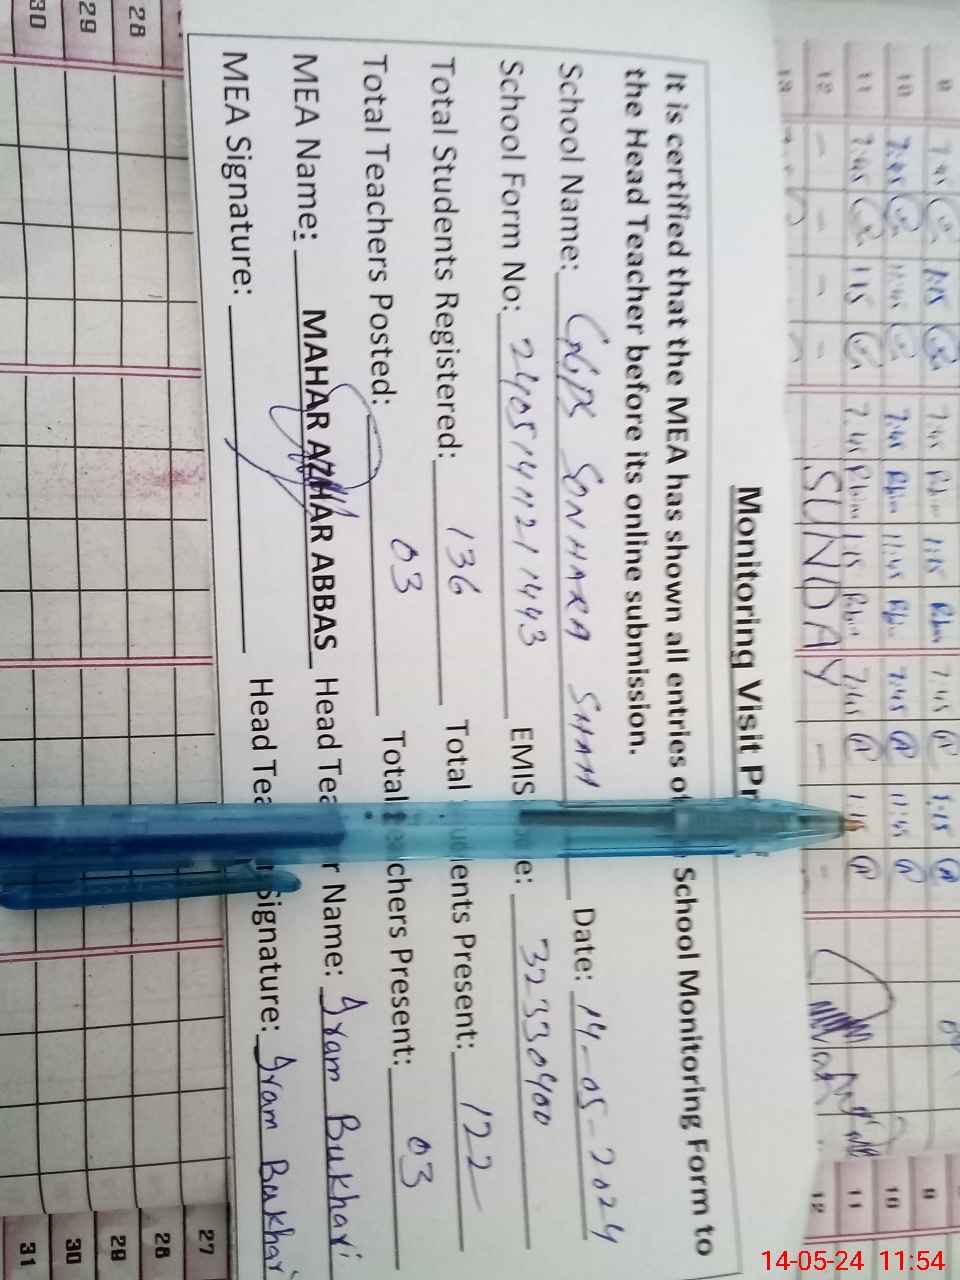 Monitoring Visit Pr
It is certified that the MEA has shown all entries of School Monitoring Form to
the Head Teacher before its online submission.
School Name: GGPS SONHARA SHAH Date: 14-05-2024
School Form No: 24051411211443 EMIS e: 32330400
Total Students Registered: 136 Total udents Present: 122
Total Teachers Posted: 03 Total eachers Present: 03
MEA Name: MAHAR AZHAR ABBAS Head Tea r Name: Iram Bukhari
MEA Signature: Head Tea Signature: Iram Bukhari
9 7:45 1:15 7:45 1:15 7:45 1:15 9
10 7:45 11:45 7:45 11:45 7:45 11:45 10
11 7:45 1:15 7:45 1:15 7:45 1:15 11
12 SUNDAY 12
13
27
28 28
29 29
30 30
31
14-05-24 11:54